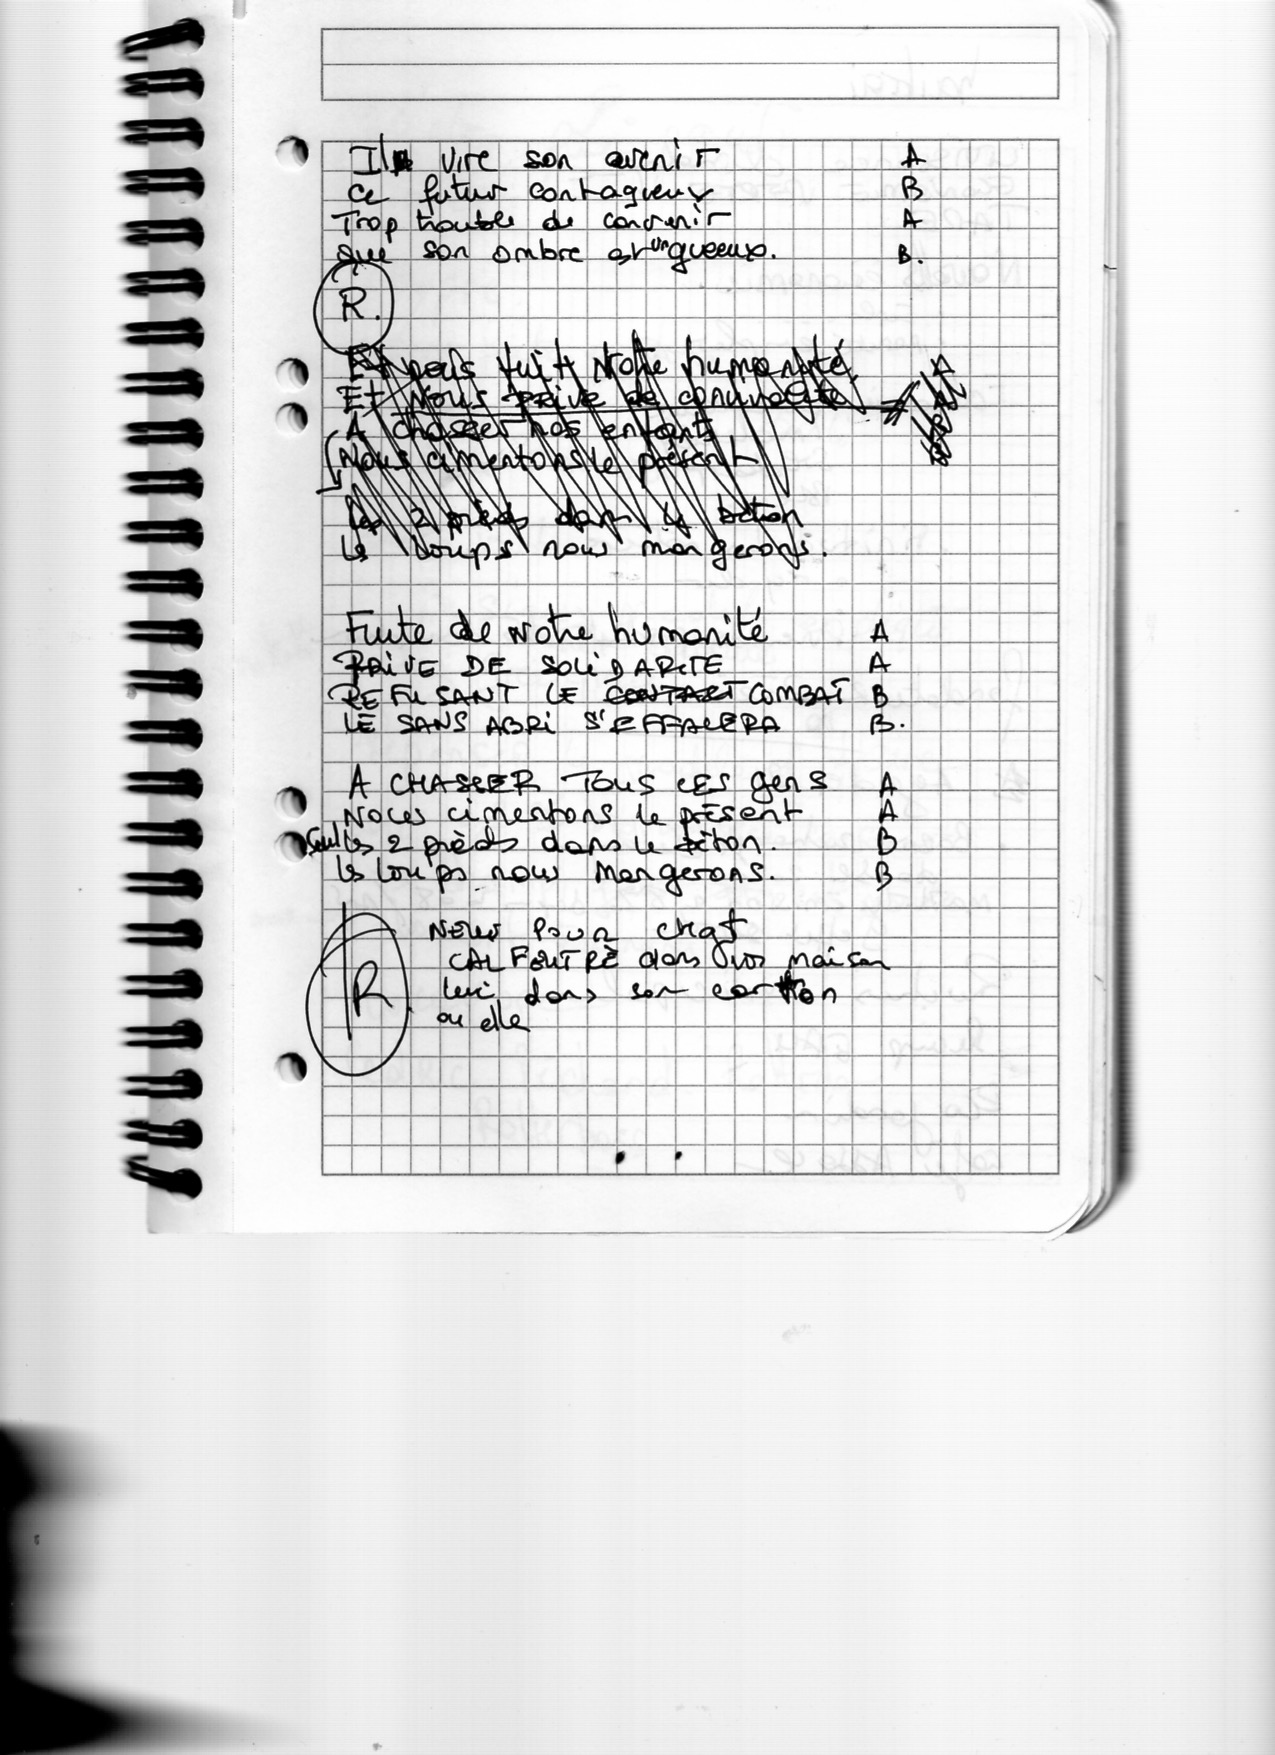 Il vire son avenir A
Ce futur contagieux B
Trop trouble de convenir A
que son ombre est un gueux. B.
R.
Et puis fuit Notre humanité A
Et Nous PRIVE de
A chasser nos enfants
Nous cimentons le présent
Les 2 pièds dans le béton
les loups nous mangerons.
Fuite de Notre humanité A
PRIVE DE SOLIDARITE A
REFUSANT LE CONTACT COMBAT B
LE SANS ABRI S'EFFACERA B.
A CHASSER TOUS CES gens A
Nous cimentons le présent A
Seul les 2 pièds dans le béton. B
les loups nous mangerons. B
R
NEUF POUR chaf
CALFEUTRÉ dans vos maison
lui, dans son carton
ou elle